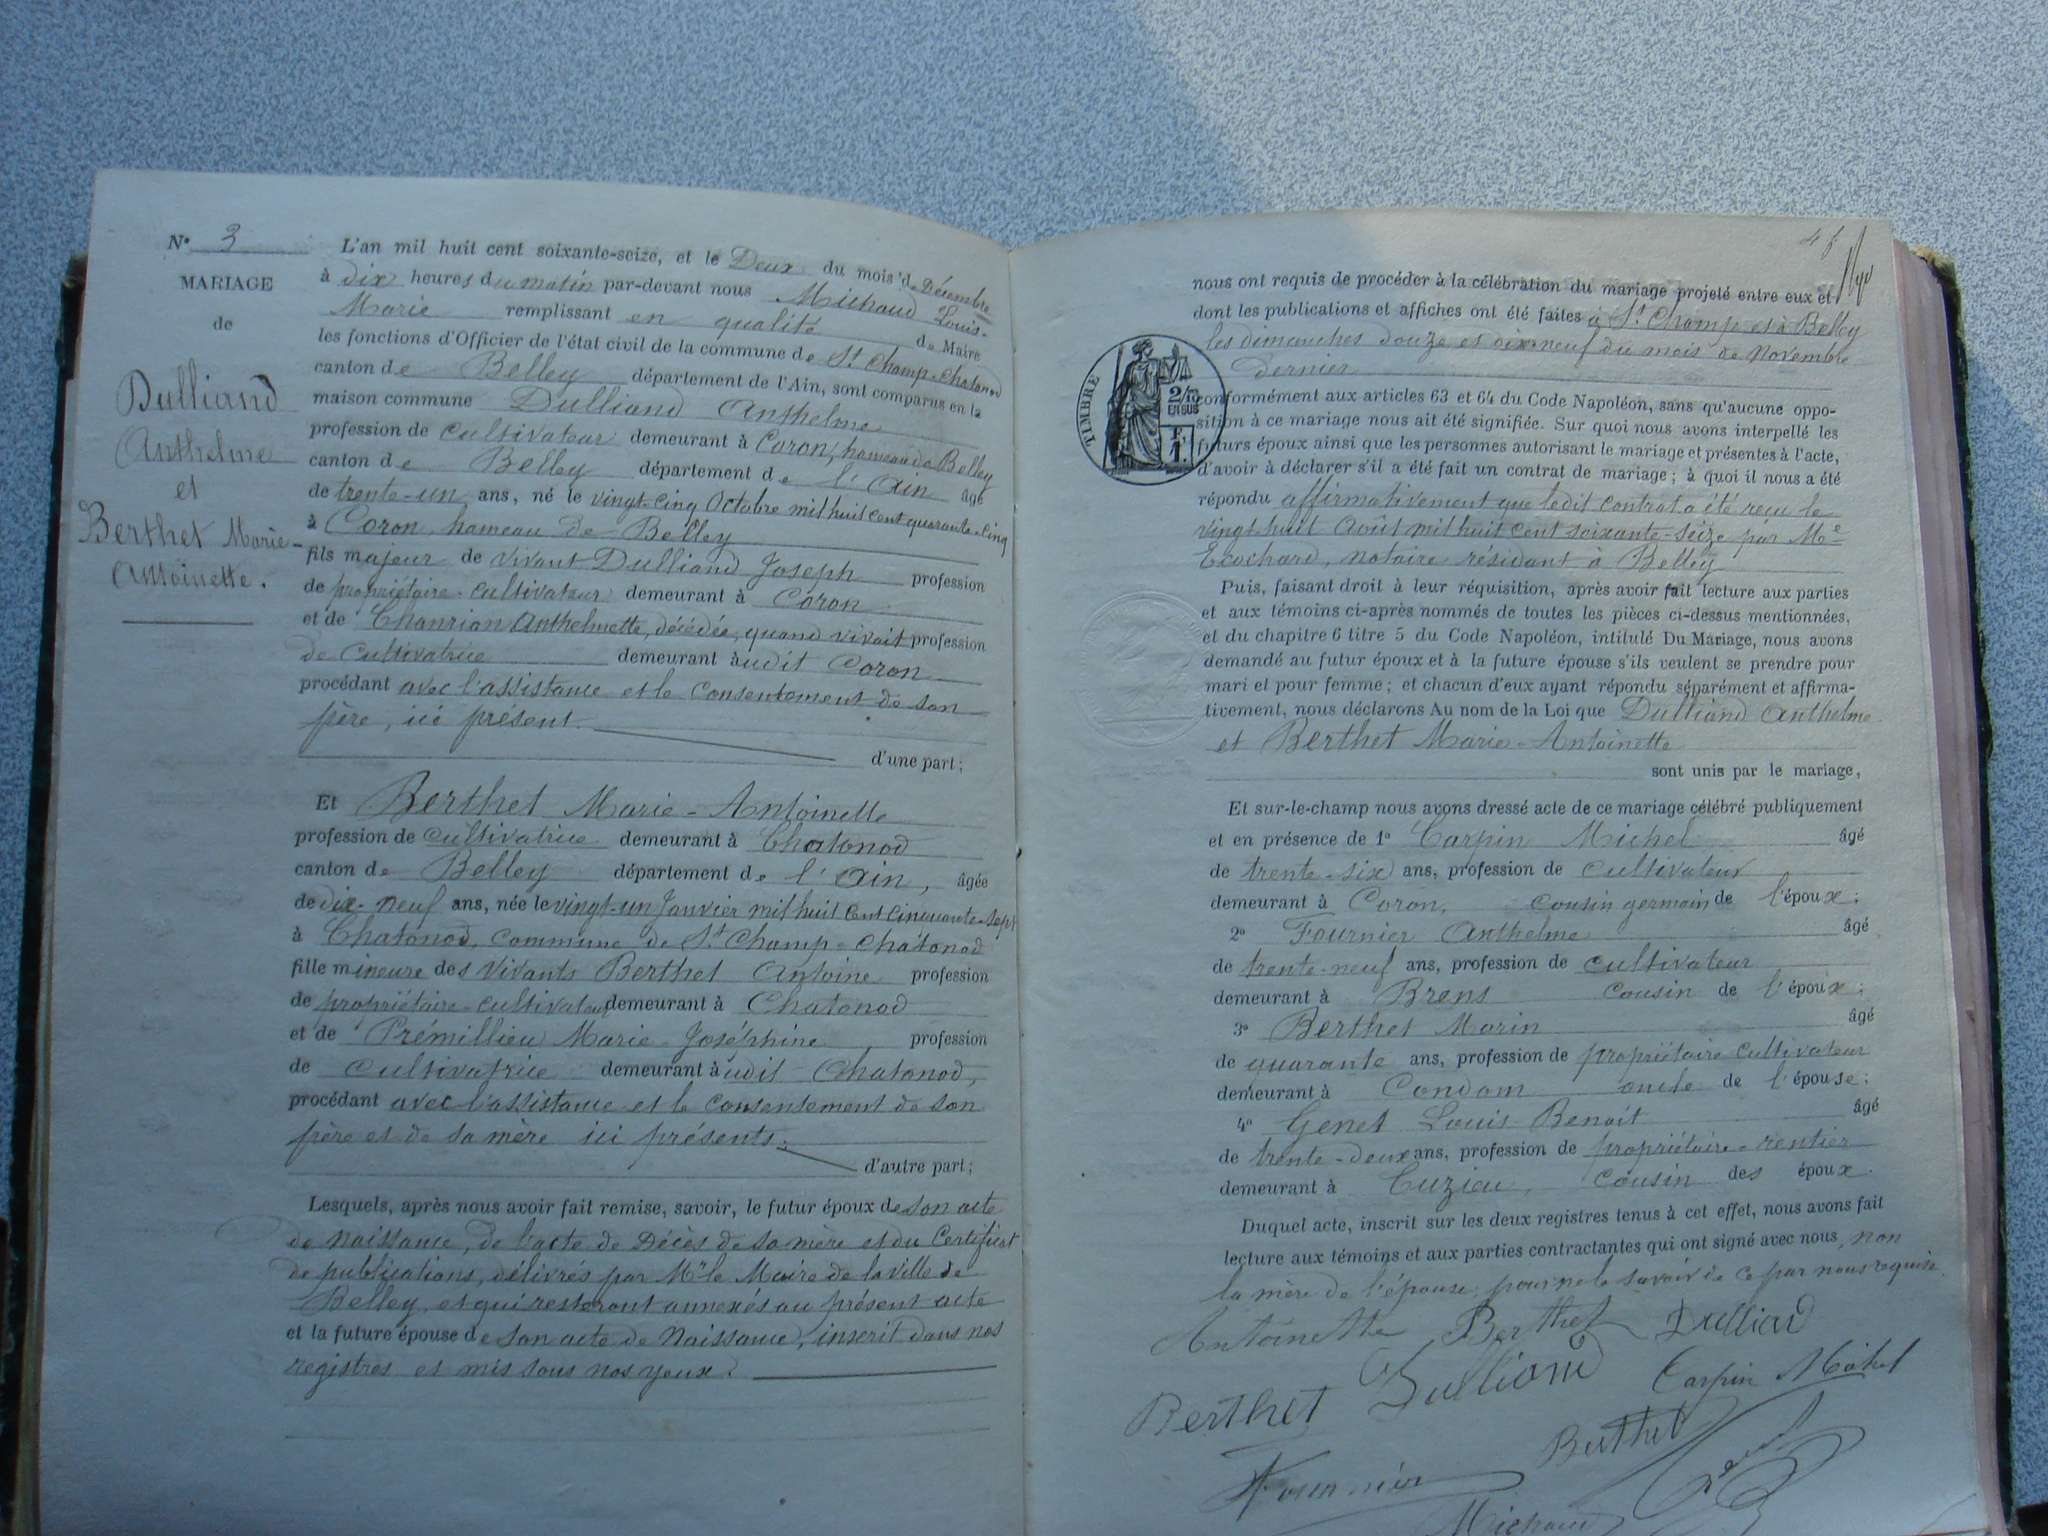 N° 3
MARIAGE
de
Dulliand
Anthelme
et
Berthet Marie-
Antoinette.
L'an mil huit cent soixante-seize, et le Deux du mois de Décembre
à dix heures du matin par-devant nous Michaud Louis-
Marie remplissant en qualité de Maire
les fonctions d'Officier de l'état civil de la commune de St Champ-Chatonod
canton de Belley département de l'Ain, sont comparus en la
maison commune Dulliand Anthelme
profession de cultivateur demeurant à Coron, hameau de Belley
canton de Belley département de l'Ain âgé
de trente-un ans, né le vingt-cinq Octobre mil huit cent quarante-cinq
à Coron, hameau de Belley
fils majeur de vivant Dulliand Joseph profession
de propriétaire-cultivateur demeurant à Coron
et de Chanrion Anthelmette, décédée, quand vivait profession
de cultivatrice demeurant àudit Coron
procédant avec l'assistance et le consentement de son
père, ici présent. d'une part;
Et Berthet Marie-Antoinette
profession de cultivatrice demeurant à Chatonod
canton de Belley département de l'Ain, âgée
de dix-neuf ans, née le vingt-un Janvier mil huit cent cinquante-sept
à Chatonod, commune de St Champ-Chatonod
fille mineure des vivants Berthet Antoine profession
de propriétaire-cultivateur demeurant à Chatonod
et de Prémillieu Marie-Joséphine profession
de cultivatrice demeurant àudit Chatonod,
procédant avec l'assistance et le consentement de son
père et de sa mère ici présents. d'autre part;
Lesquels, après nous avoir fait remise, savoir, le futur époux de son acte
de naissance, de l'acte de Décès de sa mère et du Certificat
de publications, délivrés par Mr le Maire de la ville de
Belley, et qui resteront annexés au présent acte
et la future épouse de son acte de Naissance, inscrit dans nos
registres et mis sous nos yeux.
nous ont requis de procéder à la célébration du mariage projeté entre eux et
dont les publications et affiches ont été faites à St Champ et à Belley
les dimanches douze et dix-neuf du mois de Novembre
dernier
TIMBRE
2/10 EN SUS
F. 1.
conformément aux articles 63 et 64 du Code Napoléon, sans qu'aucune oppo-
sition à ce mariage nous ait été signifiée. Sur quoi nous avons interpellé les
futurs époux ainsi que les personnes autorisant le mariage et présentes à l'acte,
d'avoir à déclarer s'il a été fait un contrat de mariage; à quoi il nous a été
répondu affirmativement que ledit contrat a été reçu le
vingt-huit Août mil huit cent soixante-seize par Me
Ecochard, notaire résidant à Belley
Puis, faisant droit à leur réquisition, après avoir fait lecture aux parties
et aux témoins ci-après nommés de toutes les pièces ci-dessus mentionnées,
et du chapitre 6 titre 5 du Code Napoléon, intitulé Du Mariage, nous avons
demandé au futur époux et à la future épouse s'ils veulent se prendre pour
mari et pour femme; et chacun d'eux ayant répondu séparément et affirma-
tivement, nous déclarons Au nom de la Loi que Dulliand Anthelme
et Berthet Marie-Antoinette
sont unis par le mariage,
Et sur-le-champ nous avons dressé acte de ce mariage célébré publiquement
et en présence de 1° Carpin Michel âgé
de trente-six ans, profession de cultivateur
demeurant à Coron, cousin germain de l'époux;
2° Fournier Anthelme âgé
de trente-neuf ans, profession de cultivateur
demeurant à Brens cousin de l'époux;
3° Berthet Marin âgé
de quarante ans, profession de propriétaire cultivateur
demeurant à Condom oncle de l'épouse;
4° Genet Louis-Benoit âgé
de trente-deux ans, profession de propriétaire-rentier
demeurant à Cuzieu, cousin des époux.
Duquel acte, inscrit sur les deux registres tenus à cet effet, nous avons fait
lecture aux témoins et aux parties contractantes qui ont signé avec nous, non
la mère de l'épouse, pour ne le savoir de ce par nous requise.
Antoinette Berthet Dulliand
Berthet Dulliand Carpin Michel
Fournier Berthet
Michaud